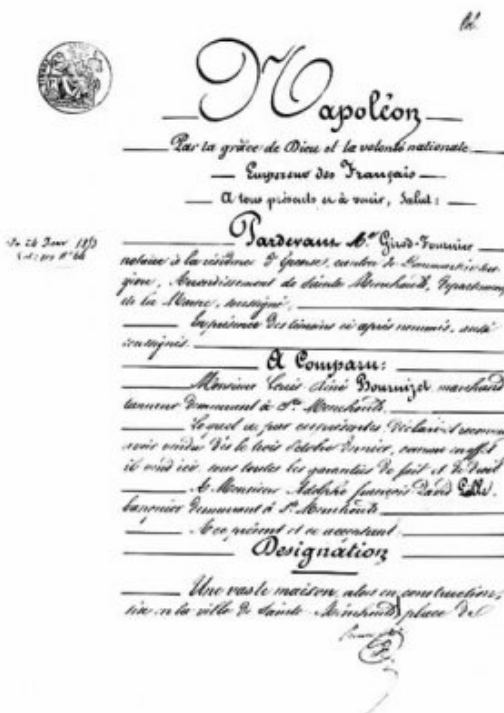 Napoléon
Par la grâce de Dieu et la volonté nationale
Empereur des Français
A tous présents et à venir, Salut:
Pardevant Mᵉ Girod-Fournier
notaire à la résidence d' canton de
gion, Arrondissement de Sainte Menehould, département
de la Marne, soussigné.
En présence des témoins ci après nommés, aussi
soussignés.
A Comparu:
Monsieur Louis Bournizet marchand
tanneur demeurant à Sᵗᵉ Menehould.
Lequel a, par ces présentes, déclaré et reconnu
avoir vendu dès le trois octobre dernier, comme en effet
il vend ici, sous toutes les garanties de fait et de droit
A Monsieur Adolphe françois David
demeurant à Sᵗᵉ Menehould
A ce présent et ce acceptant.
Désignation
Une vaste maison, alors en construction,
sise en la ville de Sainte Menehould, place de